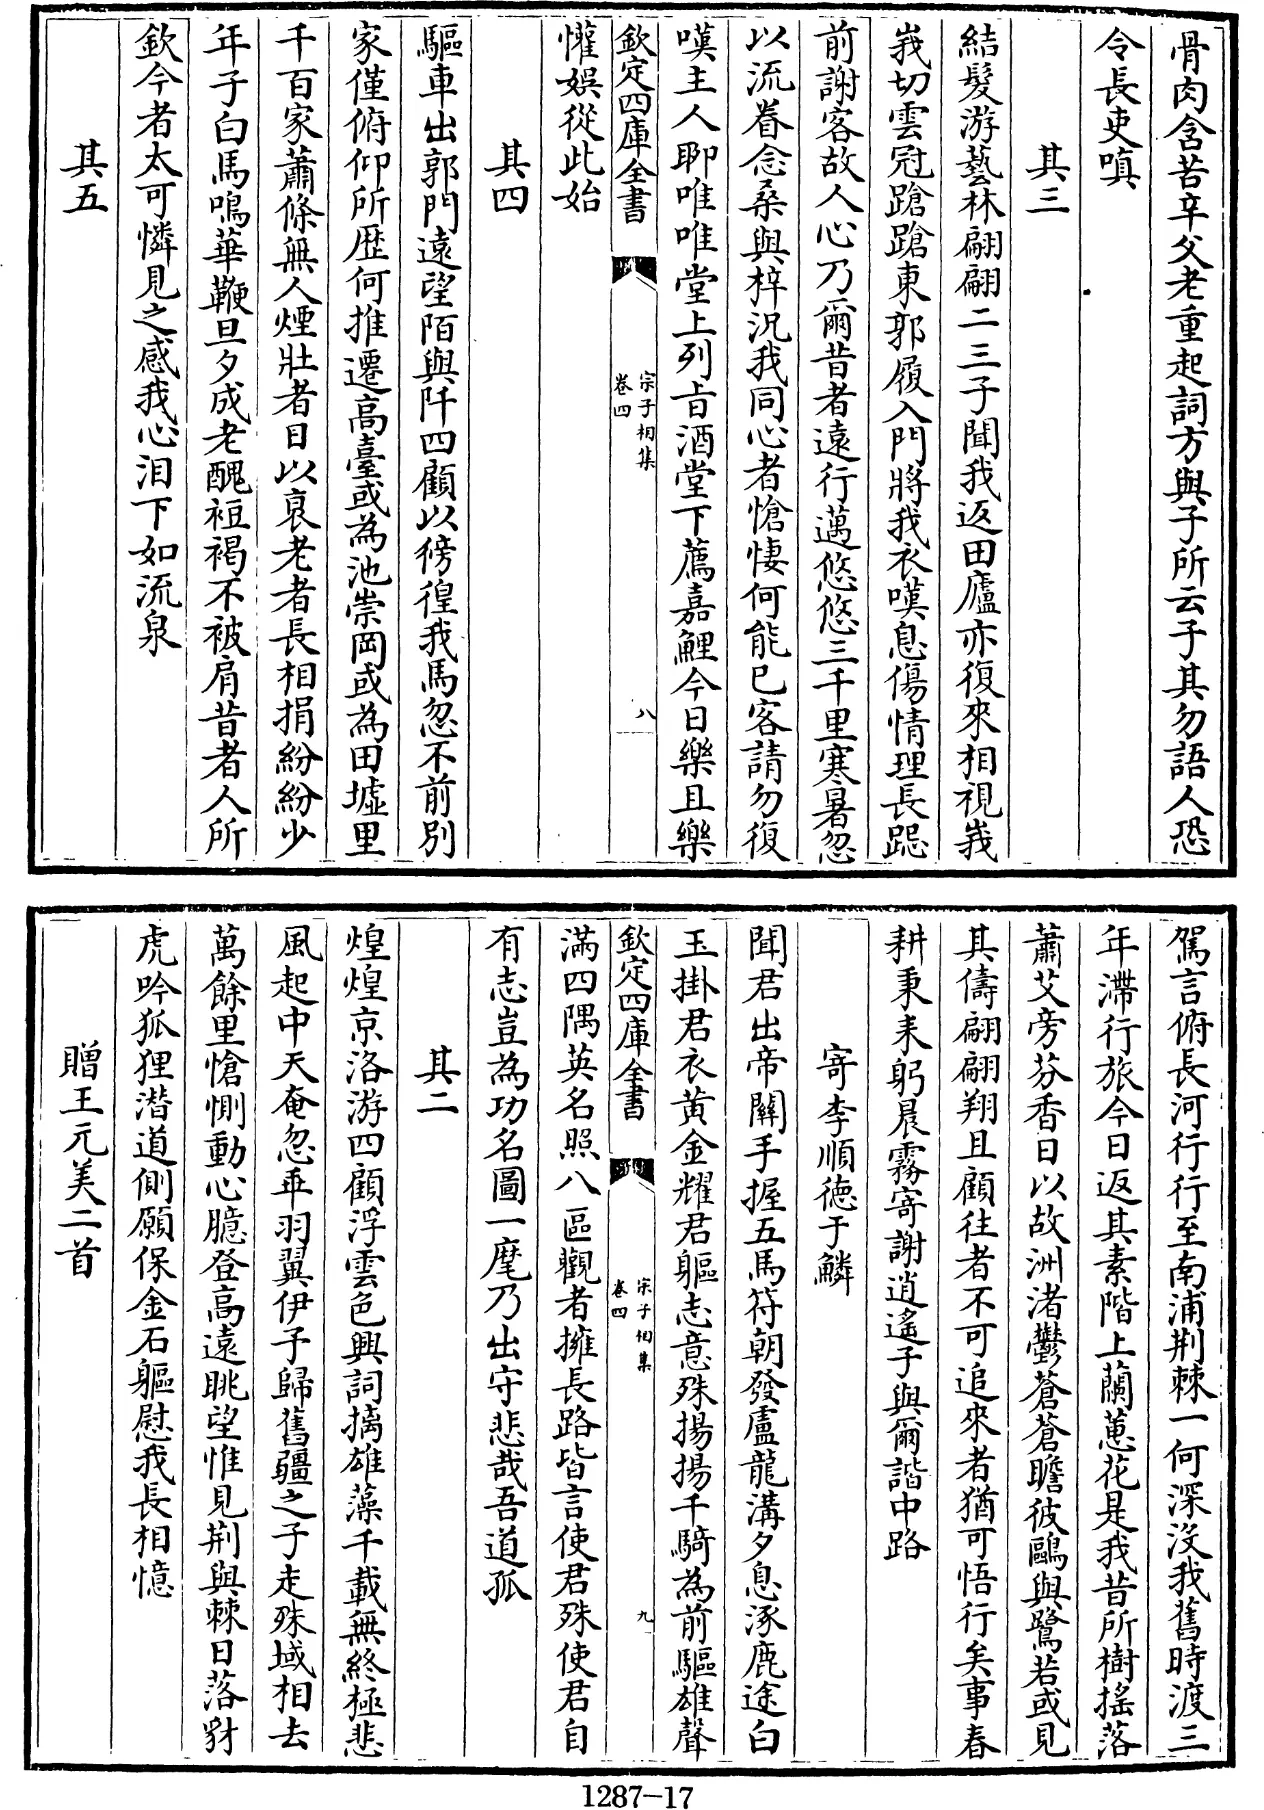 骨肉含苦辛父老重起詞方與子所云子其勿語人恐
令長吏嗔
其三
結髮游藝林翩翩二三子聞我返田廬亦復來相視峩
峩切雲冠蹌蹌東郭履入門將我衣嘆息傷情理長跽
前謝客故人心乃爾昔者遠行邁悠悠三千里寒暑忽
以流眷念桑與梓況我同心者愴悽何能已客請勿復
嘆主人聊唯唯堂上列旨酒堂下薦嘉鯉今日樂且樂
欽定四庫全書
宗子相集
卷四
八
懽娛從此始
其四
驅車出郭門遠望陌與阡四顧以徬徨我馬忽不前別
家僅俯仰所歷何推遷高臺或為池崇岡或為田墟里
千百家蕭條無人煙壯者日以哀老者長相捐紛紛少
年子白馬鳴華鞭旦夕成老醜裋褐不被肩昔者人所
欽今者太可憐見之感我心泪下如流泉
其五
駕言俯長河行行至南浦荆棘一何深沒我舊時渡三
年滯行旅今日返其素階上蘭蕙花是我昔所樹摇落
蕭艾旁芬香日以故洲渚鬱蒼蒼瞻彼鷗與鷺若或見
其儔翩翩翔且顧往者不可追來者猶可悟行矣事春
耕秉耒躬晨霧寄謝逍遙子與爾諧中路
寄李順德于鱗
聞君出帝闕手握五馬符朝發盧龍溝夕息涿鹿途白
玉掛君衣黄金耀君軀志意殊揚揚千騎為前驅雄聲
欽定四庫全書
宗子相集
卷四
九
滿四隅英名照八區觀者擁長路皆言使君殊使君自
有志豈為功名圖一麾乃出守悲哉吾道孤
其二
煌煌京洛游四顧浮雲色興詞摛雄藻千載無終極悲
風起中天奄忽乖羽翼伊子歸舊疆之子走殊域相去
萬餘里愴惻動心臆登高遠眺望惟見荆與棘日落豺
虎吟狐狸潛道側願保金石軀慰我長相憶
贈王元美二首
1287-17